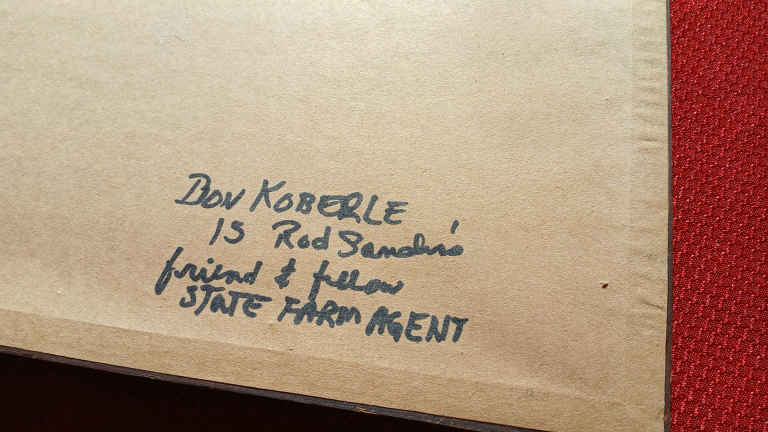 DON KOBERLE
IS Rod Sandin's
friend & fellow
STATE FARM AGENT